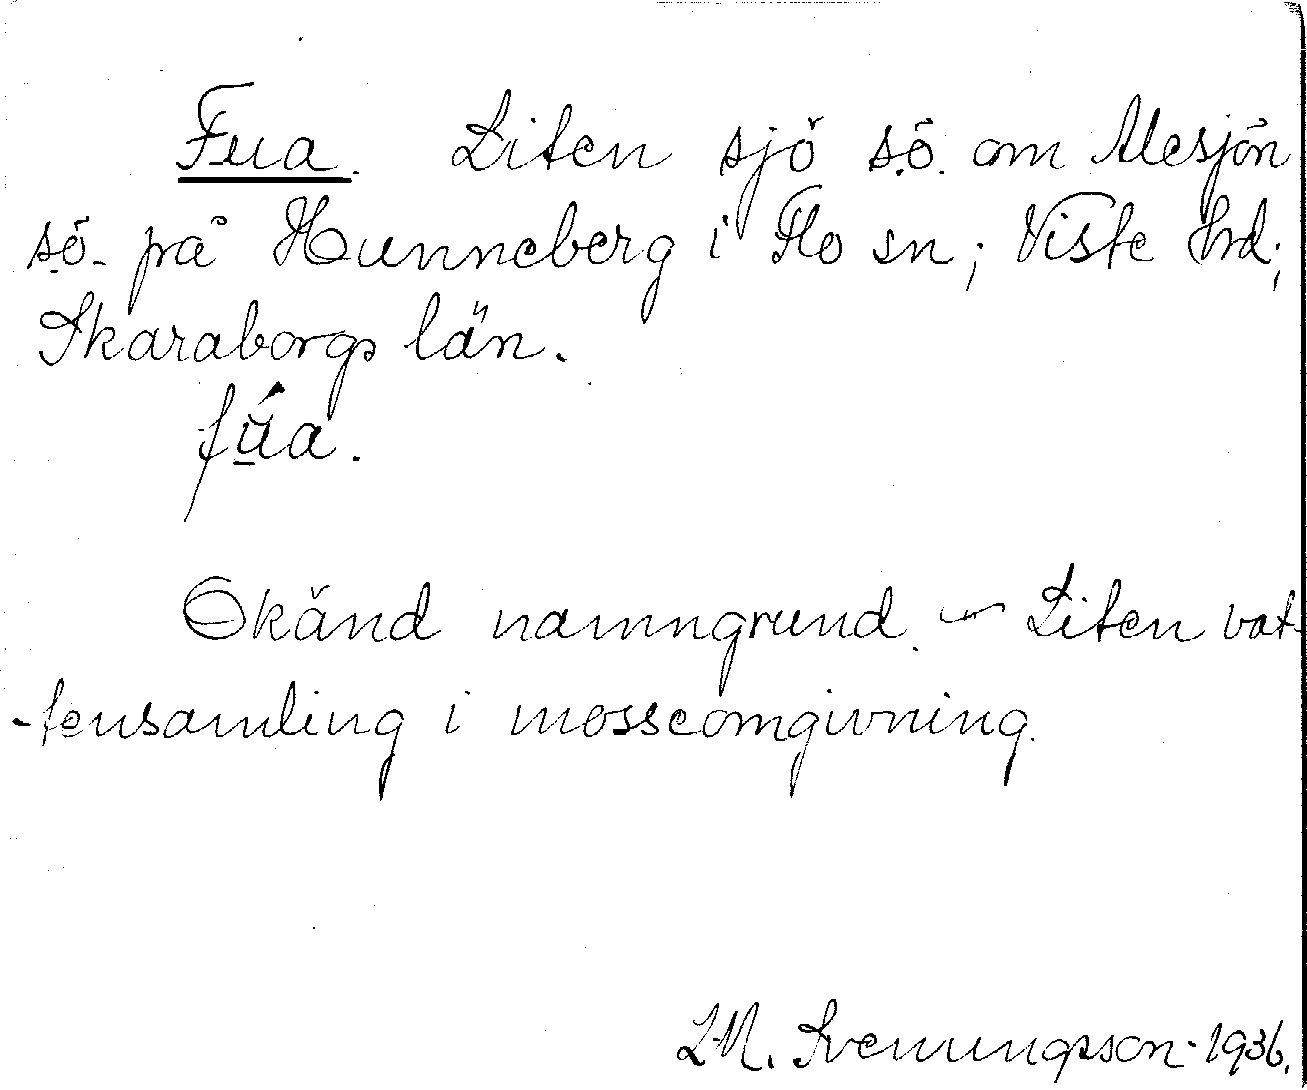 Fua. Liten sjö s.ö. om Alesjön
s.ö. på Hunneberg i Flo sn; Viste hrd;
Skaraborgs län.
fú̲a.
Okänd namngrund. - Liten vat-
-tensamling i mosseomgivning.
L.M. Svenungsson. 1936.